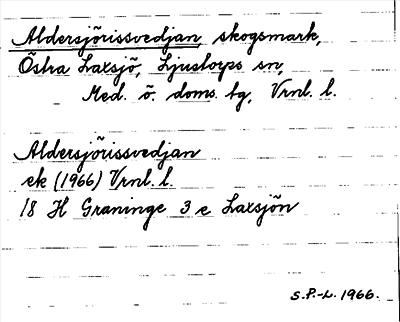 Aldersjörissvedjan, skogsmark,
Östra Laxsjö, Ljustorps sn,
Med. ö. doms. tg, Vrnl. l.
Aldersjörissvedjan
ek (1966) Vrnl. l.
18 H Graninge 3 e Laxsjön
S.P.-L. 1966.